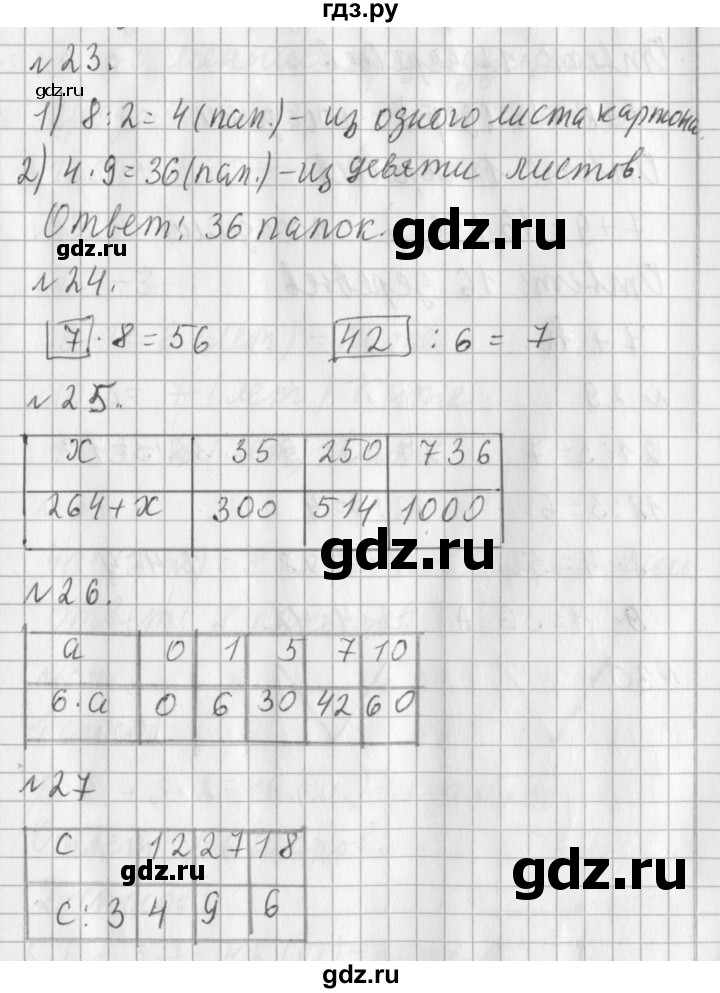 гдз.ру
№23.
gdz.ru
1) 8:2=4(пап.) - из одного листа картона.
2) 4·9=36(пап.) - из девяти листов.
Ответ: 36 папок.
gdz.ru
gdz.ru
№24.
7 · 8 = 56 42 : 6 = 7
№25.
x 35 250 736
264+x 300 514 1000
gdz.ru
№26.
a 0 1 5 7 10
6·a 0 6 30 42 60
№27
c 12 27 18
gdz.ru
gdz.ru
c:3 4 9 6
gdz.ru